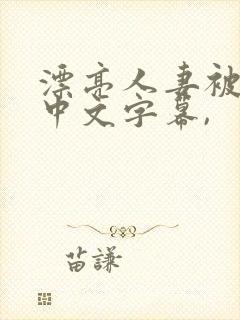 漂亮人妻被
中文字幕,
苗謙